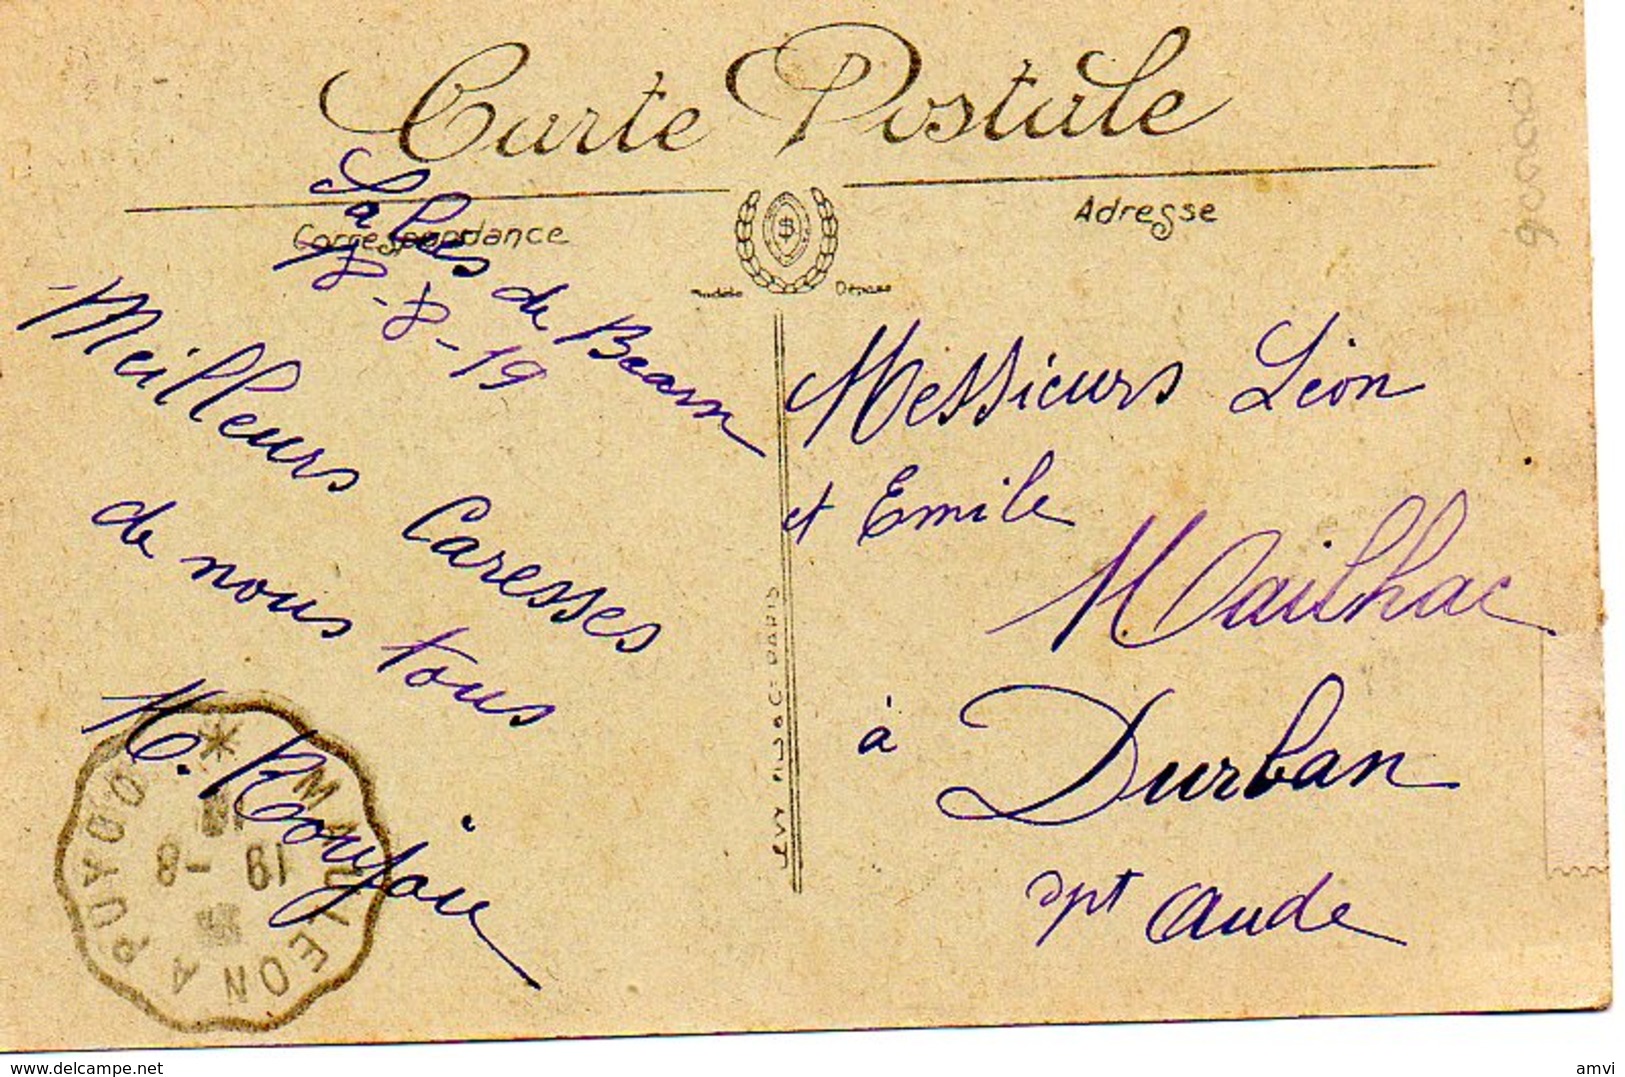 Carte Postale
Correspondance
Adresse
Modèle Déposé
Salies de Bearn
18-8-19
Meilleurs Caresses
de nous tous
H. Roujou
Messieurs Léon
et Emile
Mailhac
à Durban
dpt Aude
MAULEON A PUYOO
19 -8
90008
amvi